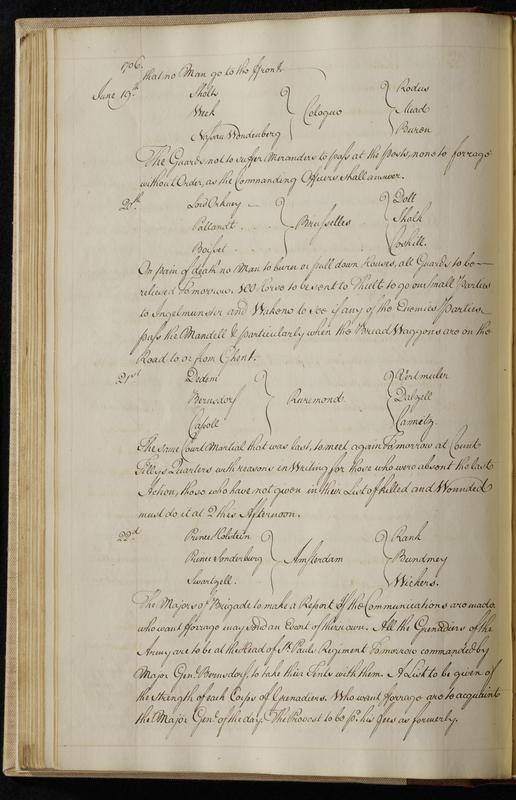 1706.
that no Man go to the ffront.
June 19th. Sholts Rodus
Week Cologne Mead
Nassau Wondenberg Buren
The Guards not to suffer Meranders to pass at the posts, none to forrage
without Order, as the Commanding Officers shall answer.
20th. Lord Orkney Dott
Pallandt Brusselles Shalk
Boisset Coshill.
On pain of death no Man to buren or pull down houses, all Guards to be
relieved Tomorrow. 100 horse to be sent to Thielt to go out small Parties
to Ingelmunster and Wakene to see if any of the Enemies Parties
pass the Mandell & particularly when the Bread Waggons are on the
Road to or from Ghent.
21st Dedem Vertmuler
Bernsdorf Ruremond Dalzell
Cassell Cannitz.
The same Court Martial that was last, to meet again Tomorrow at Count
Tillys Quarters with reasons in Writing for those who were absent the last
Action, those who have not given in their List of killed and Wounded
must do it at 2 this Afternoon.
22d. Prince Holstein Rank
Prince Sonderburg Amsterdam Bundmey
Swartzell. Wickers.
The Majors of Brigade to make a Report if the Communications are made,
who want fforrage may send an Event of their own. All the Grenadiers of the
Army are to be at the Head of St. Pauls Regiment Tomorrow commanded by
Major Genl. Bernsdorf, to take their Tents with them. A List to be given of
the strength of each Corps of Grenadiers. Who want fforrage are to acquaint
the Major Genl. of the day. The Provost to be pd. his fees as formerly.